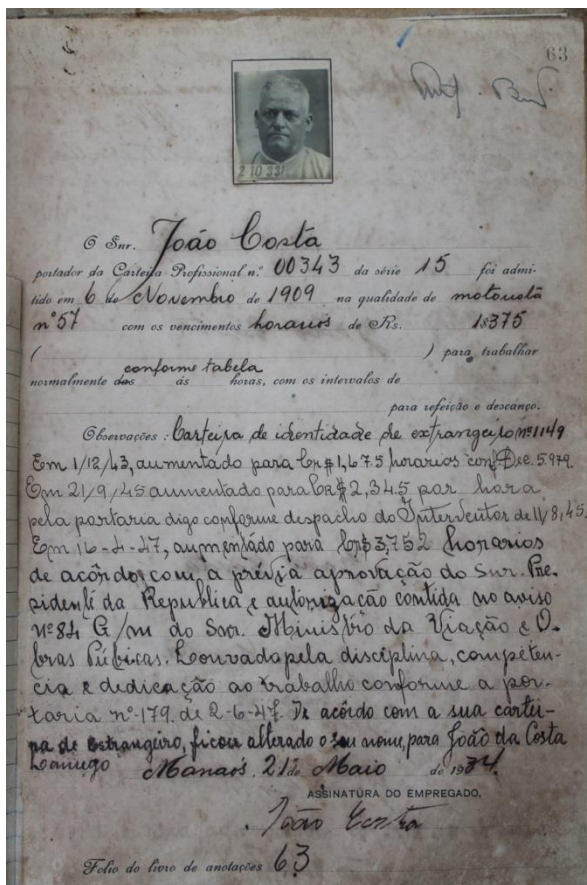 63
2 10 33
O Snr. João Costa
portador da Carteira Profissional n.º 00343 da série 15 foi admi-
tido em 6 de Novembro de 1909 na qualidade de
nº 57 com os vencimentos horarios de Rs. 1$375
( ) para trabalhar
conforme tabela
normalmente das ás horas, com os intervalos de
para refeição e descanço.
Observações: Carteira de identidade de extrangeiro nº 1149
Em 1/12/43, aumentado para Cr$ 1,675 horarios conf. Dec. 5.979.
Em 21/9/45 aumentado para Cr$ 2,345 por hora
pela portaria digo conforme despacho do Interventor de 11/8/45
Em 16-4-47, aumentado para Cr$ 3,752 horarios
de acôrdo com a prévia aprovação do Snr. Pre-
sidente da Republica e autorização contida no aviso
nº 84 G/m do Snr. Ministro da Viação e O-
bras Públicas. Louvado pela disciplina, competen-
cia e dedicação ao trabalho conforme a por-
taria nº 179. de 2-6-47. De acôrdo com a sua cartei-
ra de estrangeiro, ficou alterado o seu nome, para João da Costa
Manaós, 21 de Maio de 1934.
ASSINATURA DO EMPREGADO.
João Costa
Folio do livro de anotações 63